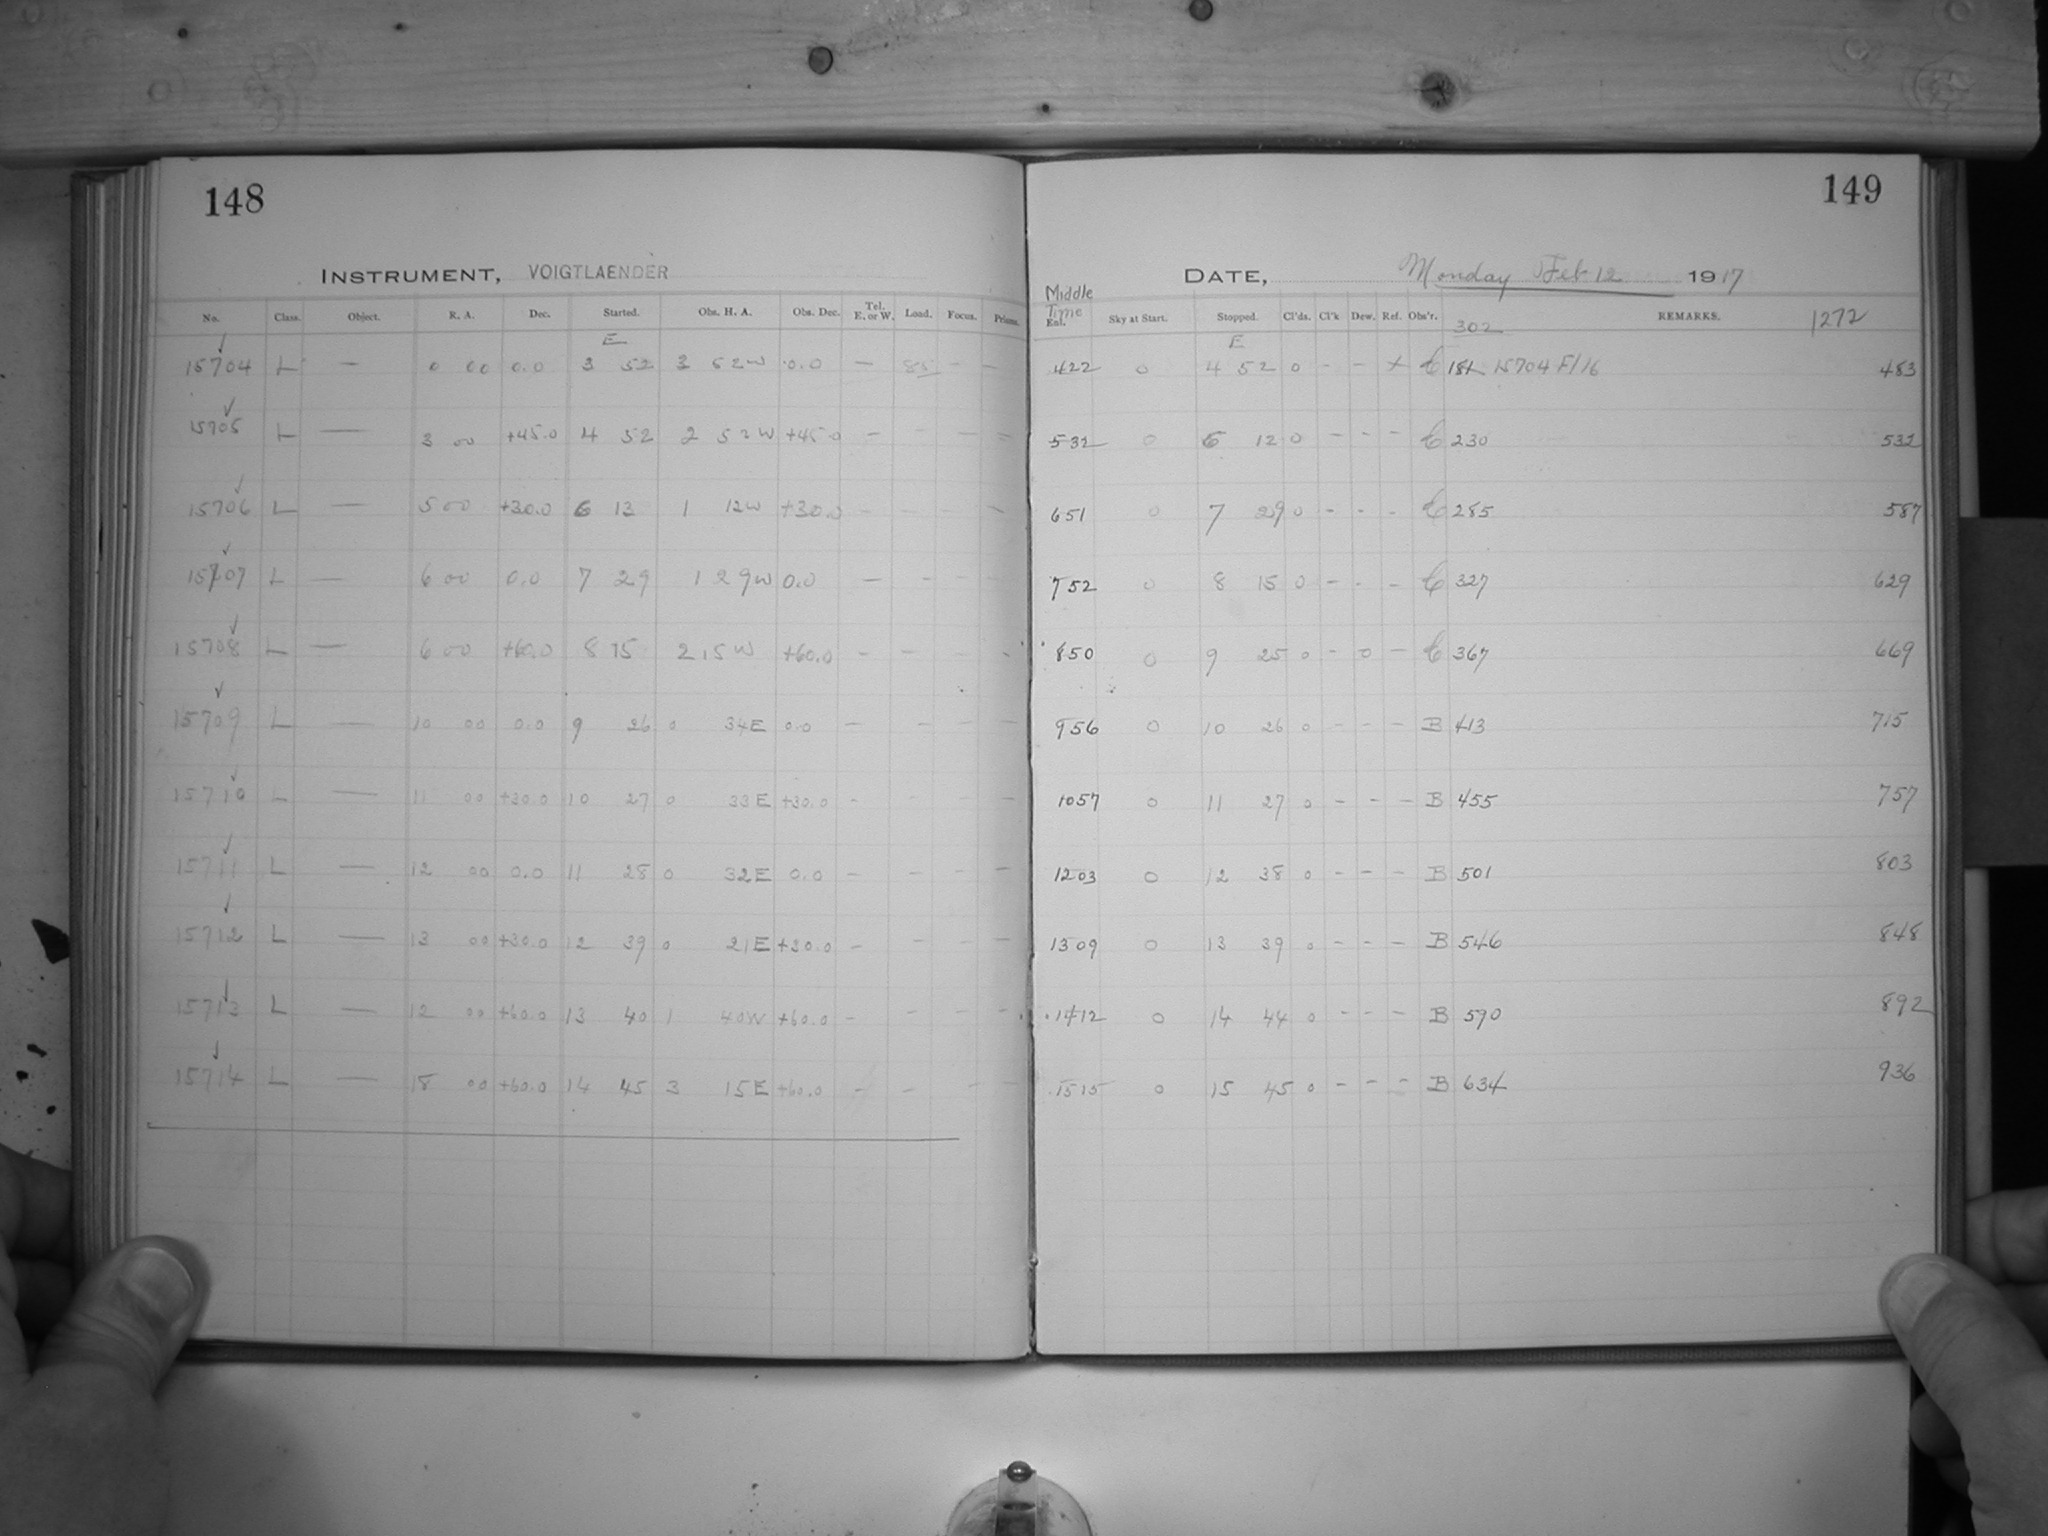 148
INSTRUMENT, VOIGTLAENDER
No. Class. Object. R. A. Dec. Started. Obs. H. A. Obs. Dec. Tel. E. or W. Load. Focus. Prisms.
E
15704 L — 0 00 0.0 3 52 3 52W 0.0 — 85 - —
15705 L — 3 00 +45.0 4 52 2 52W +45.0 — - - —
15706 L — 5 00 +30.0 6 13 1 12W +30.0 - - - —
15707 L — 6 00 0.0 7 29 1 29W 0.0 — - - -
15708 L — 6 00 +60.0 8 15 2 15W +60.0 - - - -
15709 L — 10 00 0.0 9 26 0 34E 0.0 — - - -
15710 L — 11 00 +30.0 10 27 0 33E +30.0 - - - -
15711 L — 12 00 0.0 11 28 0 32E 0.0 - - - —
15712 L — 13 00 +30.0 12 39 0 21E +30.0 - - - -
15713 L — 12 00 +60.0 13 40 1 40W +60.0 - - - -
15714 L — 18 00 +60.0 14 45 3 15E +60.0 - - - -
149
DATE, Monday Feb 12 1917
Middle Time
Ent. Sky at Start. Stopped. Cl'ds. Cl'k Dew. Ref. Obs'r. REMARKS.
302 1272
E
422 0 4 52 0 - - + C 181 15704 F/16 483
532 0 6 12 0 - - - C 230 532
651 0 7 29 0 - - - C 285 587
752 0 8 15 0 - - - C 327 629
850 0 9 25 0 - 0 - C 367 669
956 0 10 26 0 - - - B 413 715
1057 0 11 27 0 - - - B 455 757
1203 0 12 38 0 - - - B 501 803
1309 0 13 39 0 - - - B 546 848
1412 0 14 44 0 - - - B 590 892
1515 0 15 45 0 - - - B 634 936